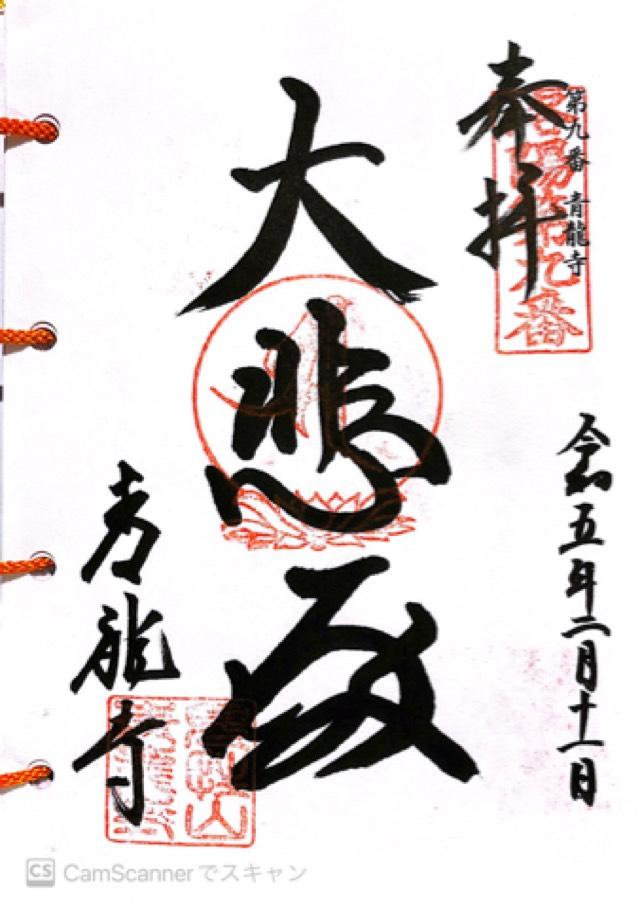 奉拝
第九番 青龍寺
洛陽第九番
令和五年二月十一日
大悲殿
青龍寺
CS CamScannerでスキャン